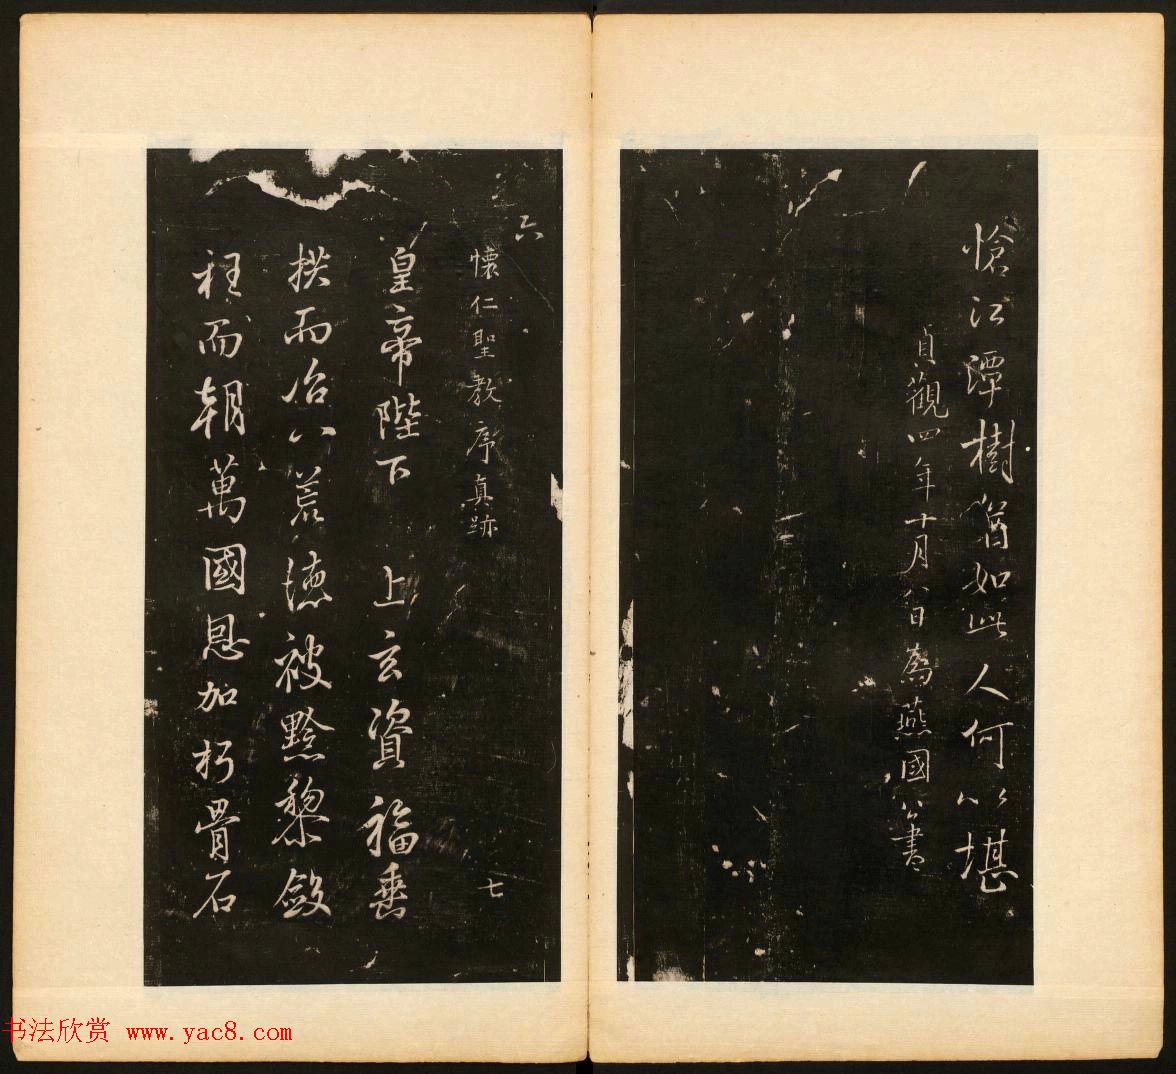 愴江潭樹猶如此人何以堪
貞觀四年十月八日為燕國公書
六
懷仁聖教序真跡
七
皇帝陛下 上玄資福垂
拱而治八荒德被黔黎斂
枉而朝萬國恩加朽骨石
书法欣赏 www.yac8.com